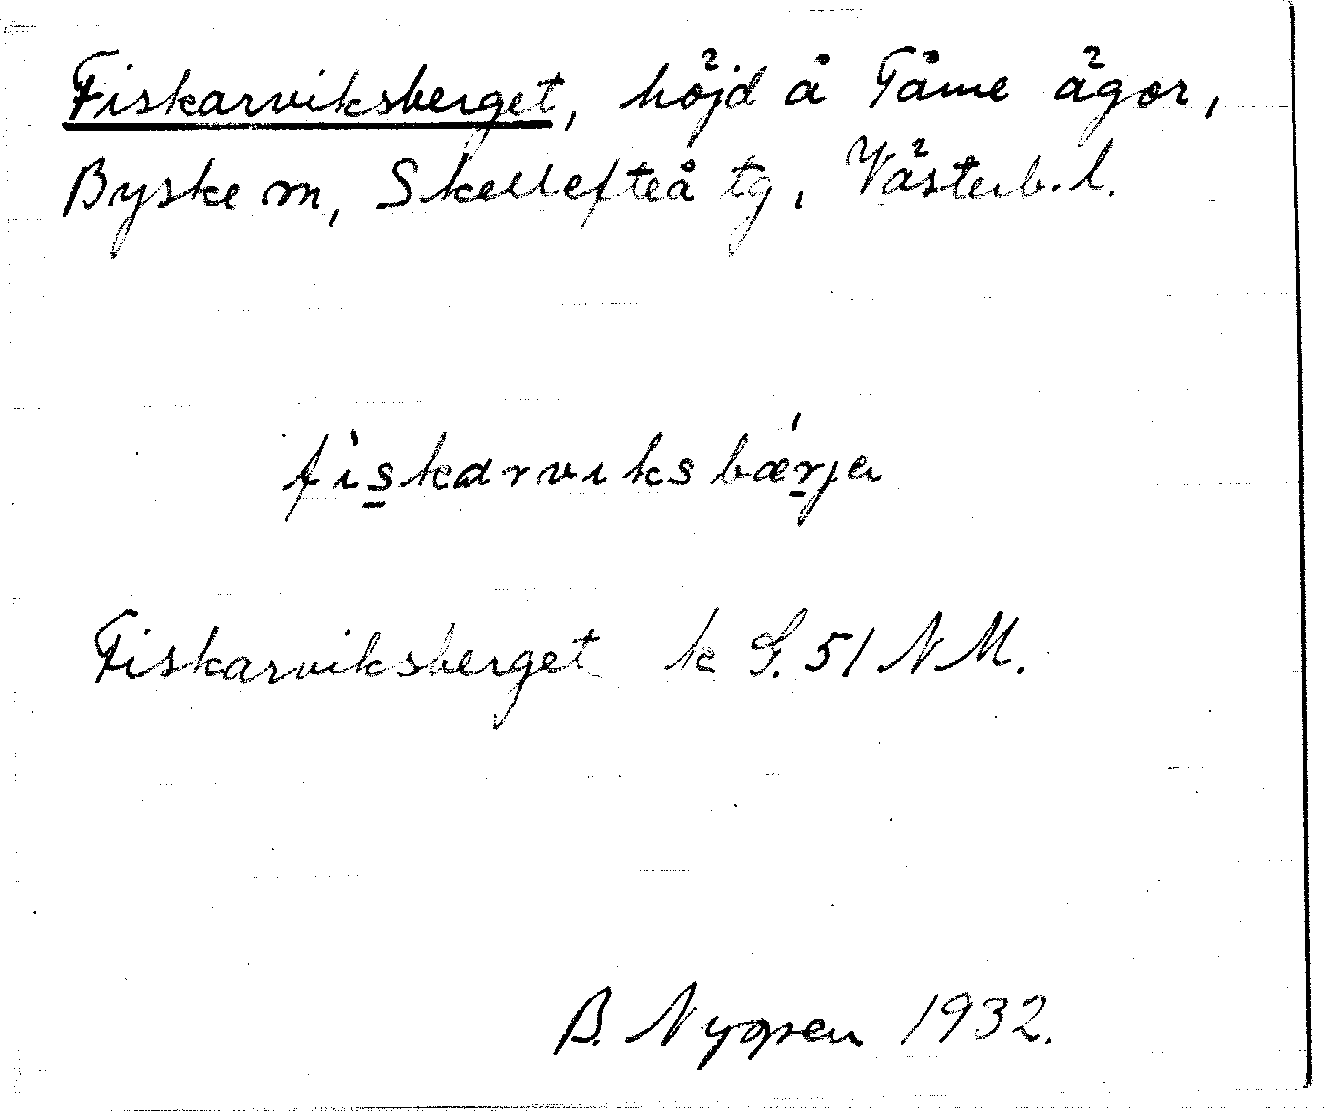 Fiskarviksberget, höjd å Tåme ägor,
Byske sn, Skellefteå tg, Västerb.l.
fìskarviksbǽrjer
Fiskarviksberget k S.51 N M.
B. 1932.